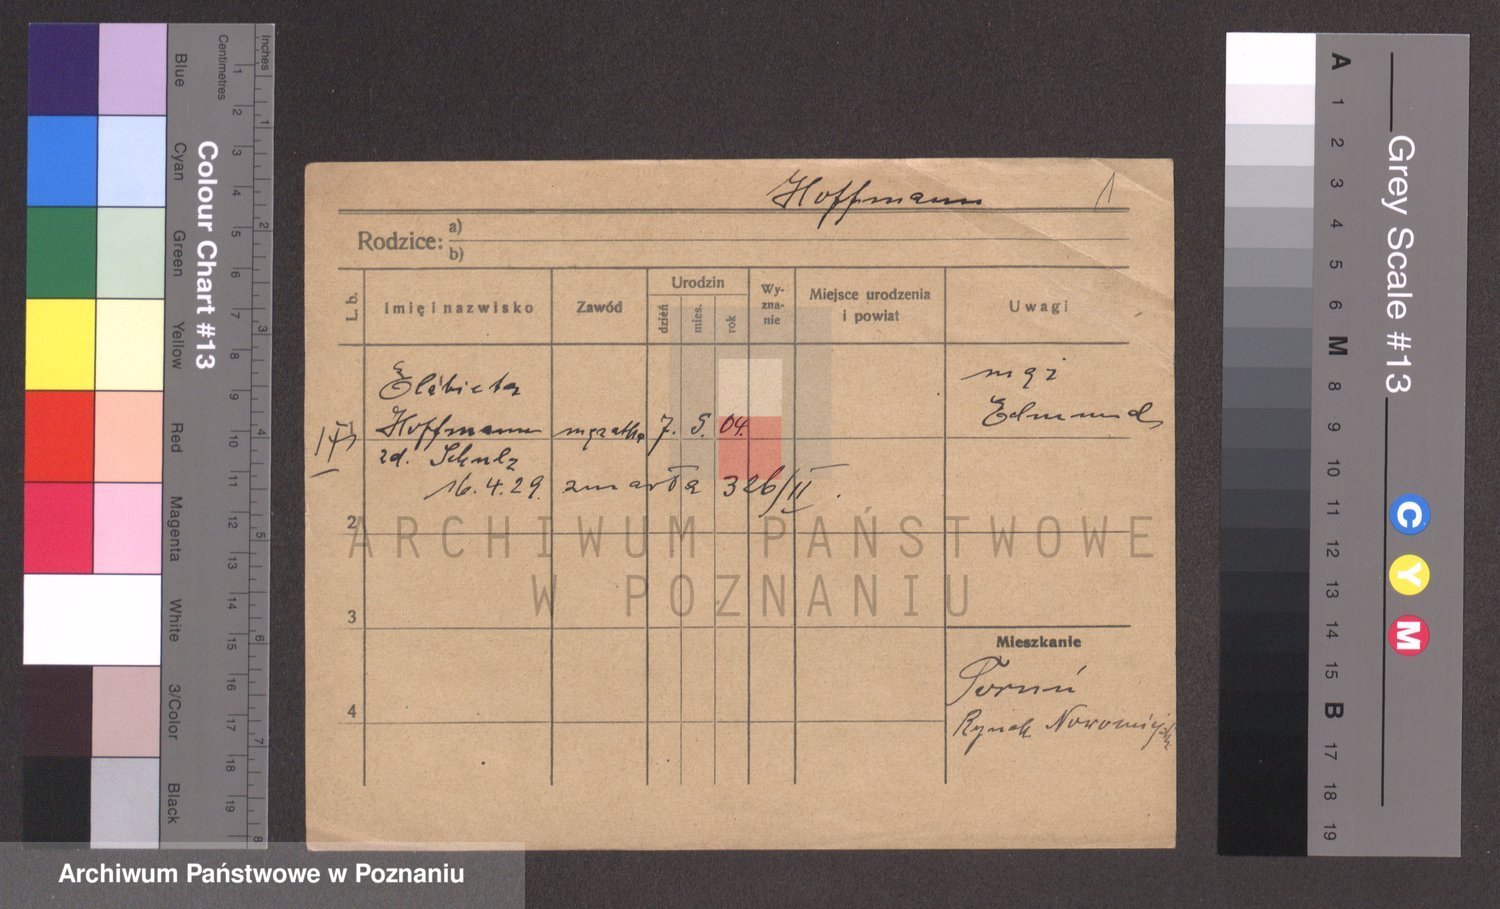 Hoffmann 1
Rodzice: a)
b)
L. b. Imię i nazwisko Zawód Urodzin dzień mies. rok Wy-zna-nie Miejsce urodzenia i powiat Uwagi
Elżbieta
Hoffmann mężatka 7. 5. 04.
zd. Schulz
16.4.29. zmarła 326/II.
mąż
Edmund
2
3
4
Mieszkanie
Toruń
Rynek Nowomiejski
ARCHIWUM PAŃSTWOWE
W POZNANIU
Archiwum Państwowe w Poznaniu
Colour Chart #13
Blue
Cyan
Green
Yellow
Red
Magenta
White
3/Color
Black
Centimetres
1 2 3 4 5 6 7 8 9 10 11 12 13 14 15 16 17 18 19
Inches
1 2 3 4 5 6 7 8
Grey Scale #13
A 1 2 3 4 5 6 M 8 9 10 11 12 13 14 15 B 17 18 19
C
Y
M